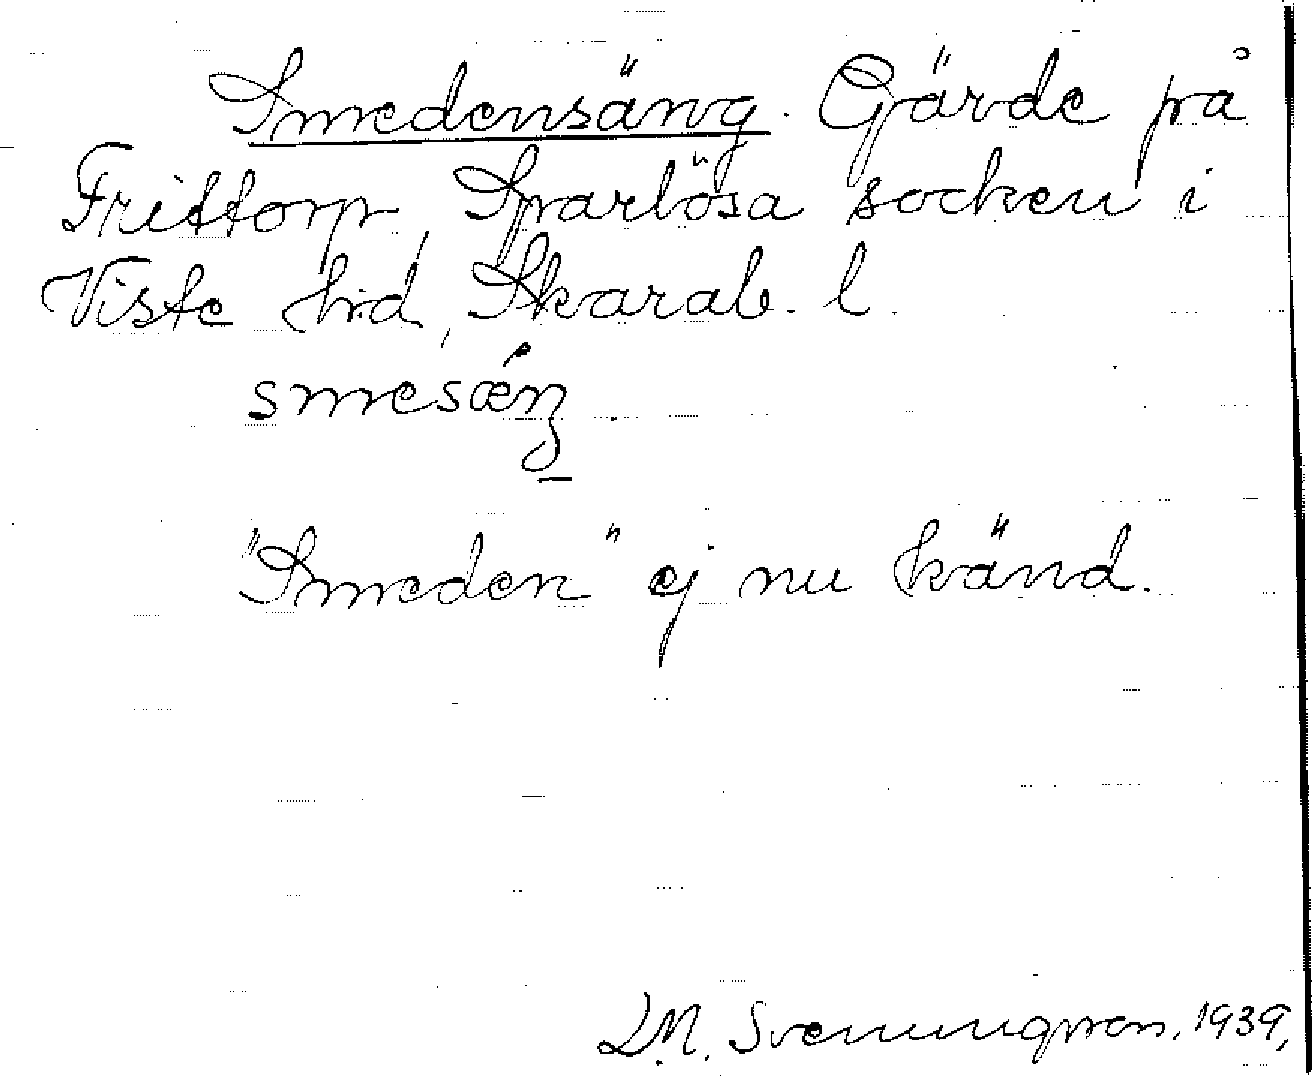 Smedensäng. Gärde på
Frittorp, Sparlösa socken i
Viste hrd, Skarab. l.
smesǽŋ
"Smeden" ej nu känd.
D.M. Svenungsson. 1939.